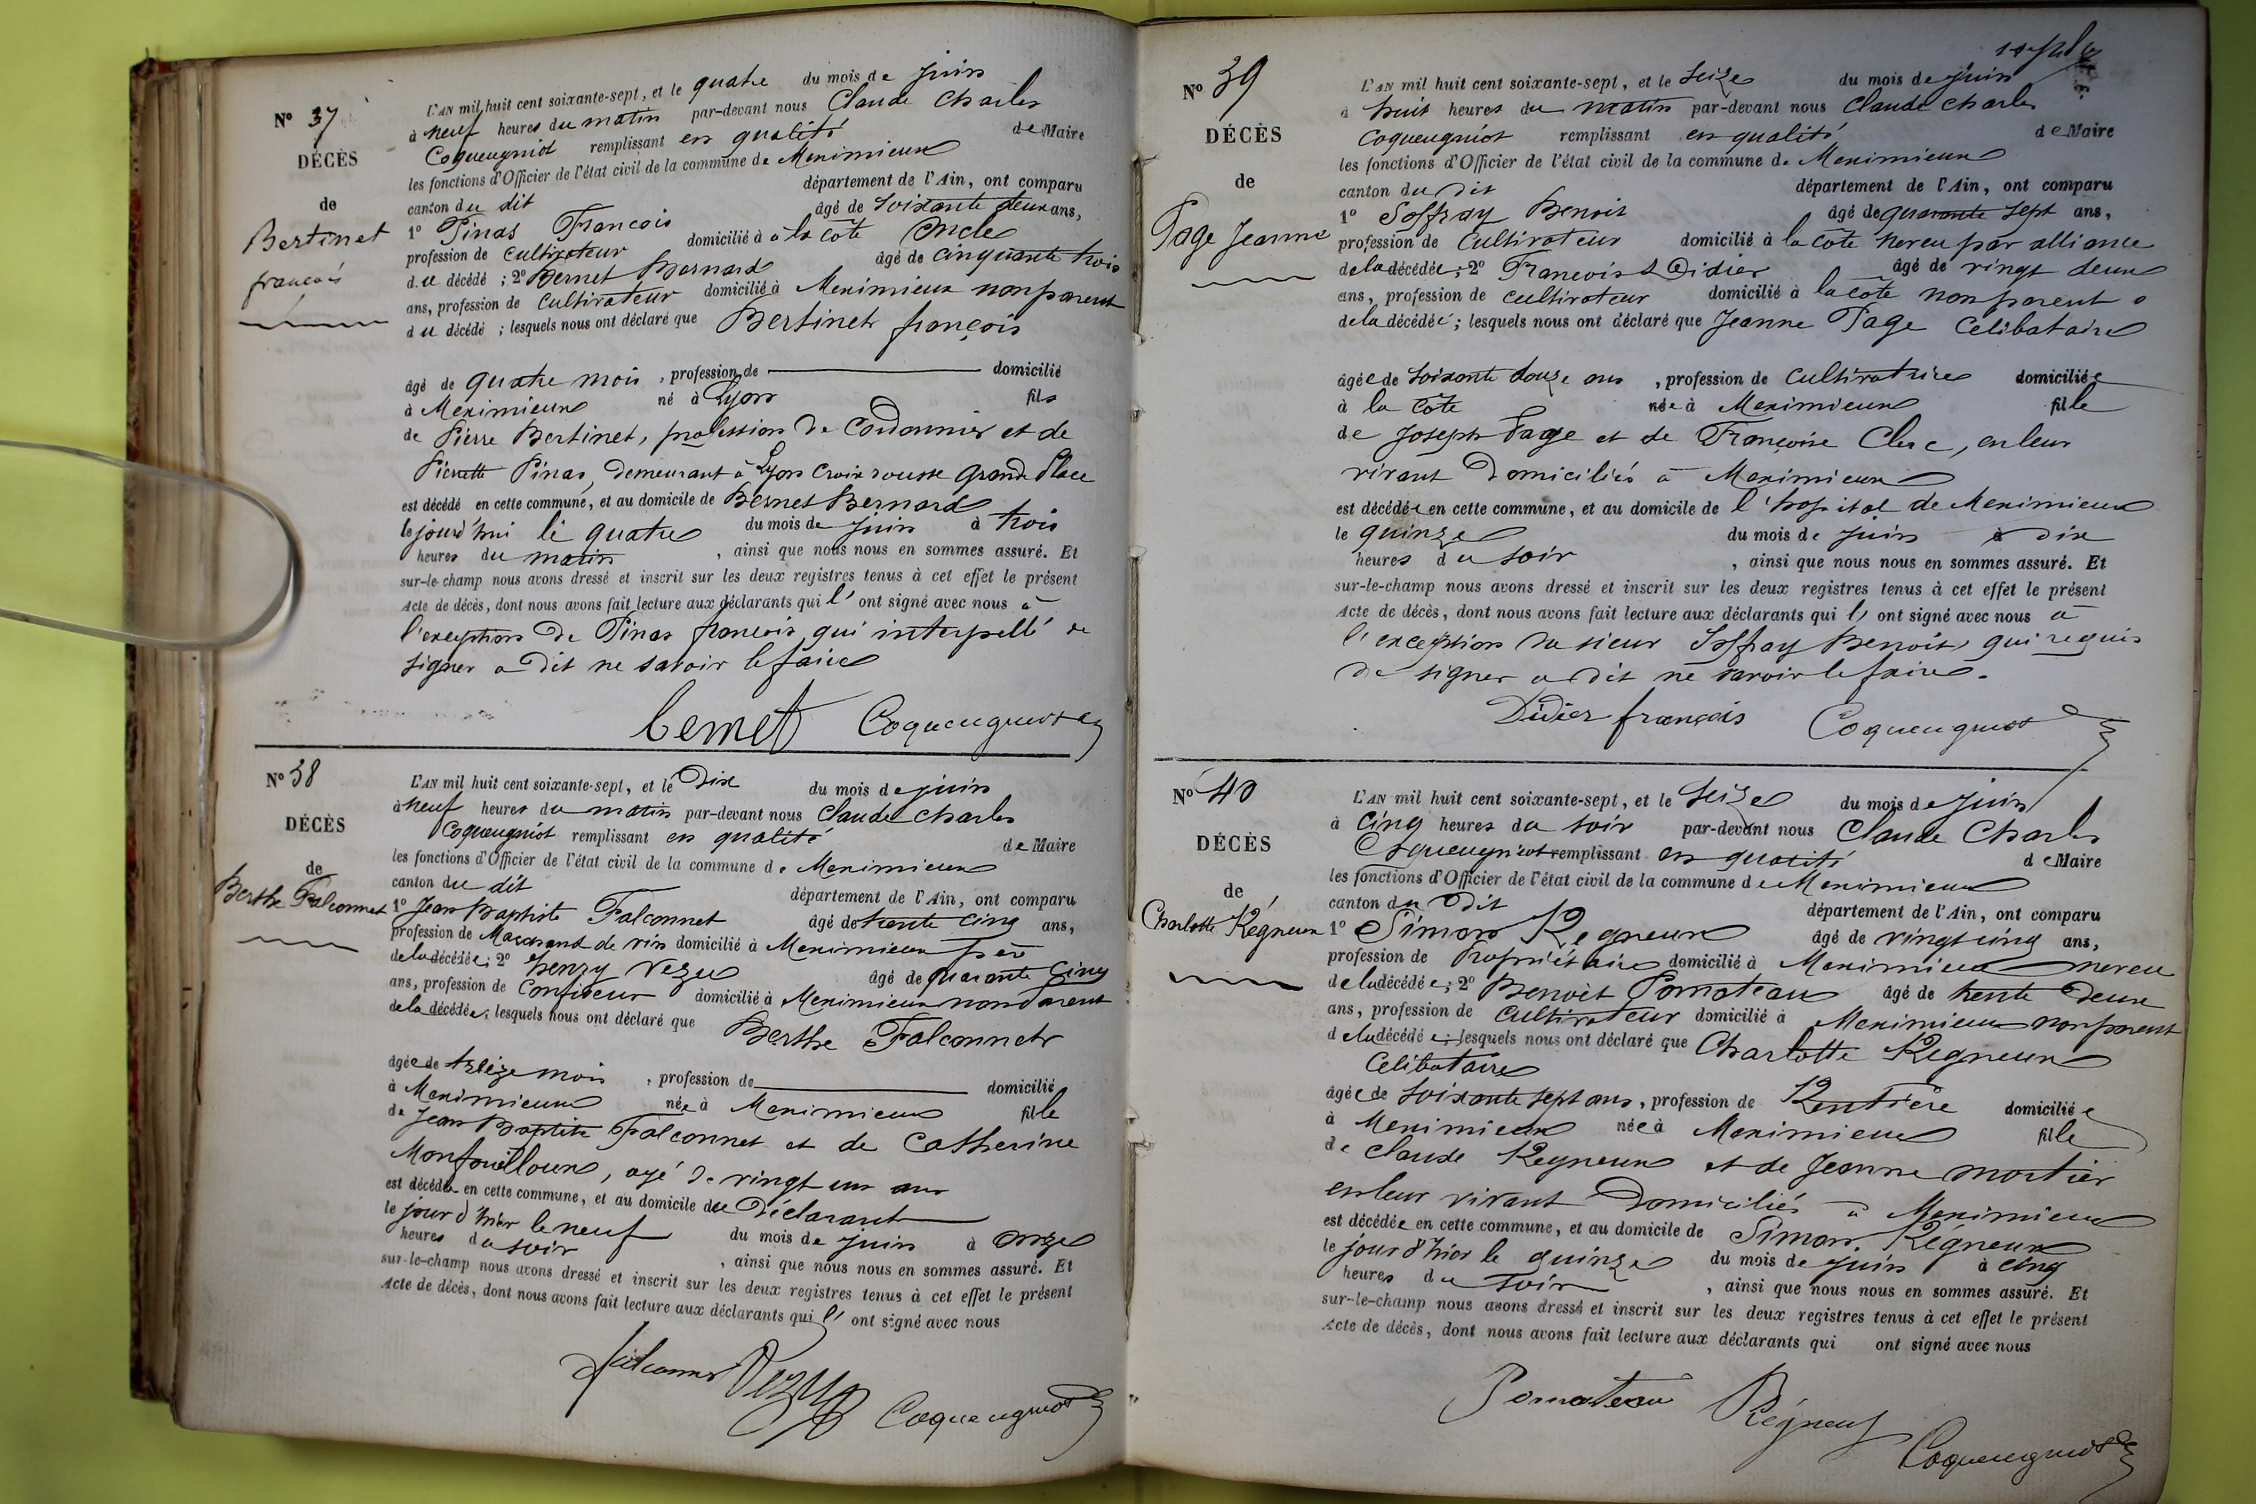 N° 37
DÉCÈS
de
Bertinet
francois
L'AN mil huit cent soixante-sept, et le quatre du mois de juin
à neuf heures du matin par-devant nous Claude Charles
Coqueugniot remplissant en qualité de Maire
les fonctions d'Officier de l'état civil de la commune de Meximieux
canton du dit département de l'Ain, ont comparu
1° Pinas Francois âgé de soixante deux ans,
profession de cultivateur domicilié à à la cote Oncle
du décédé ; 2° Bernet Bernard âgé de cinquante trois
ans, profession de cultivateur domicilié à Meximieux non parent
du décédé ; lesquels nous ont déclaré que Bertinet françois
âgé de quatre mois , profession de domicilié
à Meximieux né à Lyon fils
de Pierre Bertinet, profession de Cordonnier et de
Pierrette Pinas, demeurant à Lyon croix rousse grande Place
est décédé en cette commune, et au domicile de Bernet Bernard
le jourd'hui le quatre du mois de juin à trois
heures du matin , ainsi que nous nous en sommes assuré. Et
sur-le-champ nous avons dressé et inscrit sur les deux registres tenus à cet effet le présent
Acte de décès, dont nous avons fait lecture aux déclarants qui l' ont signé avec nous à
l'exception de Pinas francois qui interpellé de
signer a dit ne savoir le faire
bernet Coqueugniot
N° 38
DÉCÈS
de
Berthe Falconnet
L'AN mil huit cent soixante-sept, et le Dix du mois de juin
à neuf heures du matin par-devant nous Claude Charles
Coqueugniot remplissant en qualité de Maire
les fonctions d'Officier de l'état civil de la commune de Meximieux
canton du dit département de l'Ain, ont comparu
1° Jean Baptiste Falconnet âgé de trente cinq ans,
profession de Marchand de vin domicilié à Meximieux père
de la décédée; 2° henry Vezu âgé de quarante cinq
ans, profession de Confiseur domicilié à Meximieux non parent
de la décédée; lesquels nous ont déclaré que Berthe Falconnet
âgée de treize mois , profession de domicilié
à Meximieux née à Meximieux fille
de Jean Baptiste Falconnet et de Catherine
Monfouilloux, agé de vingt un ans
est décédée en cette commune, et au domicile du Déclarant
le jour d'hier le neuf du mois de juin à onze
heures du soir , ainsi que nous nous en sommes assuré. Et
sur-le-champ nous avons dressé et inscrit sur les deux registres tenus à cet effet le présent
Acte de décès, dont nous avons fait lecture aux déclarants qui l' ont signé avec nous
falconnet Vezu Coqueugniot
N° 39
DÉCÈS
de
Page Jeanne
L'AN mil huit cent soixante-sept, et le seize du mois de juin
à huit heures du matin par-devant nous Claude Charles
Coqueugniot remplissant en qualité de Maire
les fonctions d'Officier de l'état civil de la commune de Meximieux
canton du dit département de l'Ain, ont comparu
1° Soffray Benoit âgé de quarante sept ans,
profession de Cultivateur domicilié à la cote neveu par alliance
de la décédée; 2° Francois Didier âgé de vingt deux
ans, profession de cultivateur domicilié à la cote non parent
de la décédée; lesquels nous ont déclaré que Jeanne Page Celibataire
âgée de soixante douze ans , profession de Cultivatrice domiciliée
à la Cote née à Meximieux fille
de Joseph Page et de Françoise Clerc, en leur
vivant Domiciliés à Meximieux
est décédée en cette commune, et au domicile de l'hopital de Meximieux
le quinze du mois de juin à dix
heures du soir , ainsi que nous nous en sommes assuré. Et
sur-le-champ nous avons dressé et inscrit sur les deux registres tenus à cet effet le présent
Acte de décès, dont nous avons fait lecture aux déclarants qui l' ont signé avec nous à
l'exception du sieur Soffray Benoit, qui requis
de signer a dit ne savoir le faire.
Didier françois Coqueugniot
N° 40
DÉCÈS
de
Charlotte Régneux
L'AN mil huit cent soixante-sept, et le seize du mois de juin
à cinq heures du soir par-devant nous Claude Charles
Coqueugniot remplissant en qualité de Maire
les fonctions d'Officier de l'état civil de la commune de Meximieux
canton du Dit département de l'Ain, ont comparu
1° Simon Regneux âgé de vingt cinq ans,
profession de Propriétaire domicilié à Meximieux neveu
de la décédée; 2° Benoit Pomateau âgé de trente deux
ans, profession de cultivateur domicilié à Meximieux non parent
de la décédée; lesquels nous ont déclaré que Charlotte Regneux
Celibataire
âgée de soixante sept ans, profession de Rentière domiciliée
à Meximieux née à Meximieux fille
de Claude Regneux et de Jeanne mortier
en leur vivant Domiciliés à Meximieux
est décédée en cette commune, et au domicile de Simon Régneux
le jour d'hier le quinze du mois de juin à cinq
heures du soir , ainsi que nous nous en sommes assuré. Et
sur-le-champ nous avons dressé et inscrit sur les deux registres tenus à cet effet le présent
Acte de décès, dont nous avons fait lecture aux déclarants qui ont signé avec nous
Pomateau Régneux
Coqueugniot